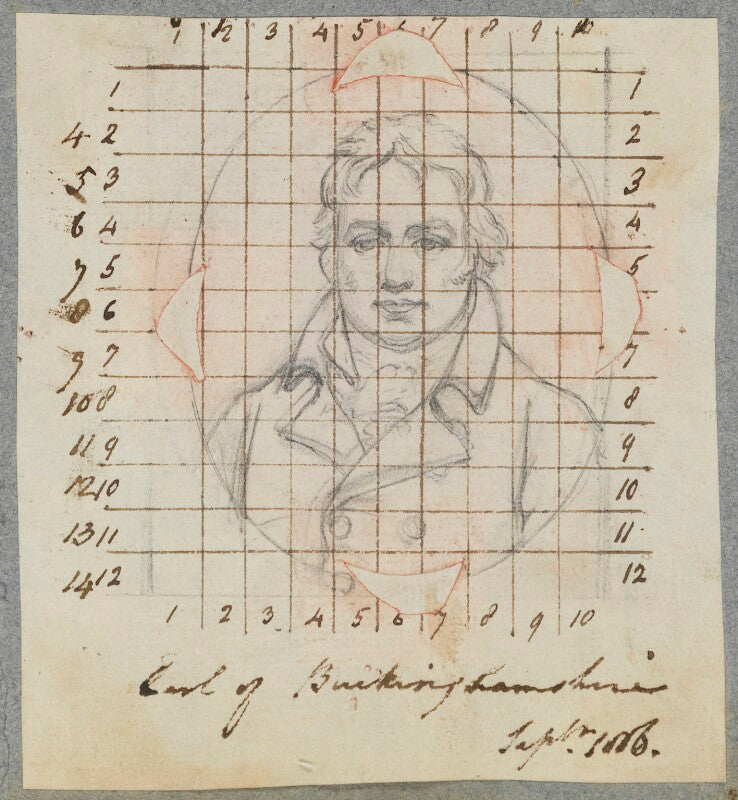 1 2 3 4 5 6 7 8 9 10
1 1
4 2 2
5 3 3
6 4 4
7 5 5
8 6
9 7 7
10 8 8
11 9 9
12 10 10
13 11 11
14 12 12
1 2 3 4 5 6 7 8 9 10
Earl of Buckinghamshire
Septr.